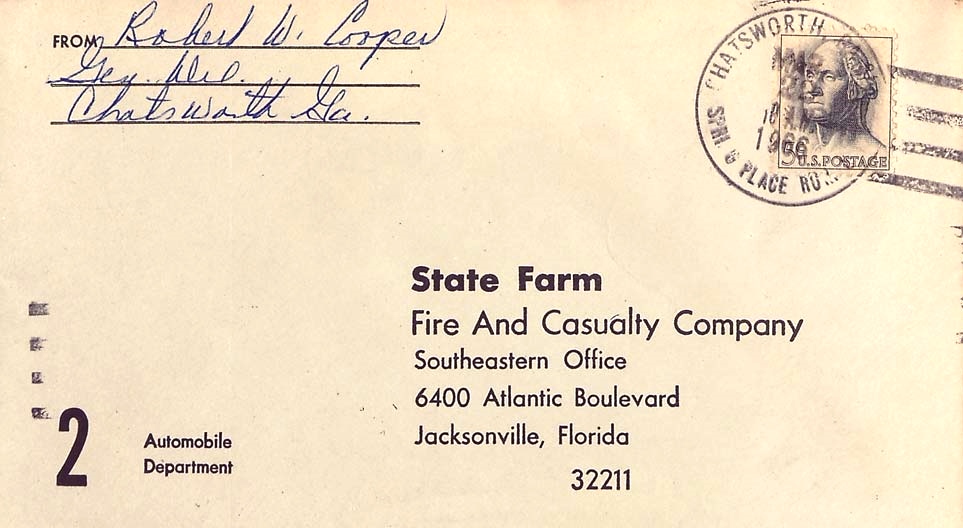 FROM Robert W. Cooper
Gen. Del.
Chatsworth Ga.
CHATSWORTH
1966
SPRI G PLACE RO
5c U.S. POSTAGE
State Farm
Fire And Casualty Company
Southeastern Office
6400 Atlantic Boulevard
Jacksonville, Florida
32211
2
Automobile
Department